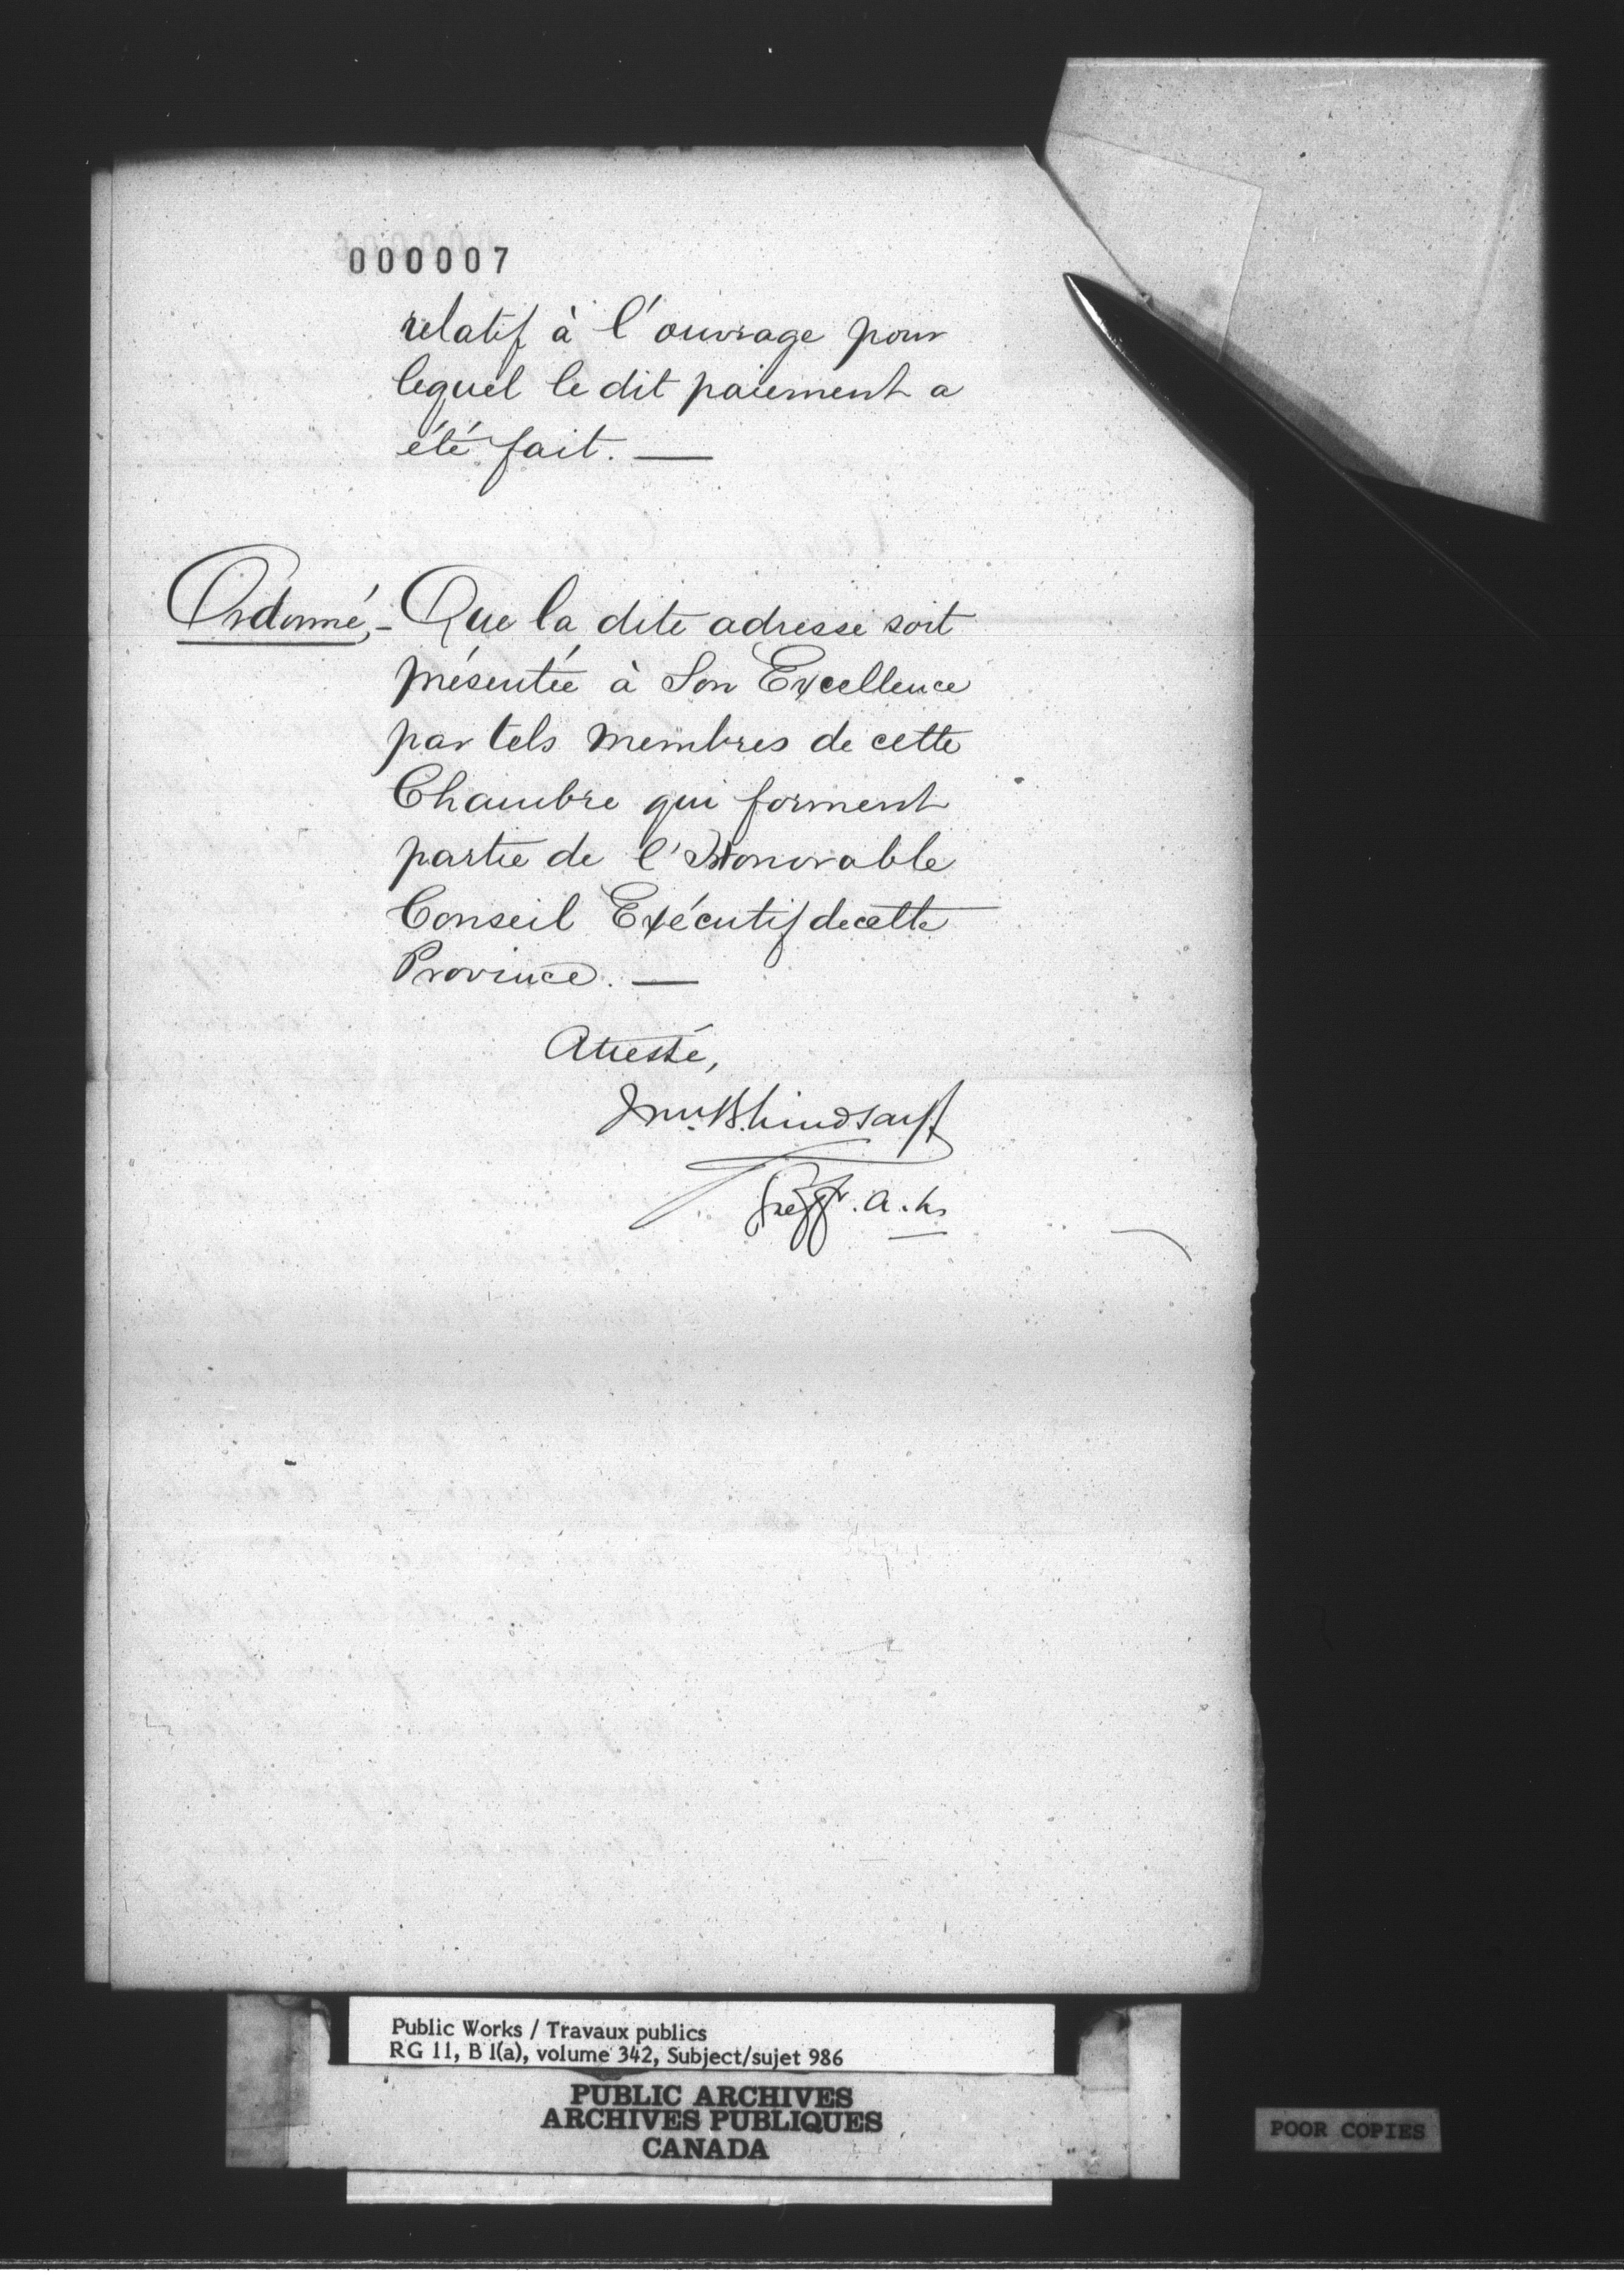 000007
relatif à l'ouvrage pour
lequel le dit paiement a
été fait. —
Ordonné,- Que la dite adresse soit
présentée à Son Excellence
par tels membres de cette
Chambre qui forment
partie de l'Honorable
Conseil Exécutif de cette
Province. —
Attesté,
Wm. B. Lindsay
Greffr. A. L.
Public Works / Travaux publics
RG 11, B 1(a), volume 342, Subject/sujet 986
PUBLIC ARCHIVES
ARCHIVES PUBLIQUES
CANADA
POOR COPIES